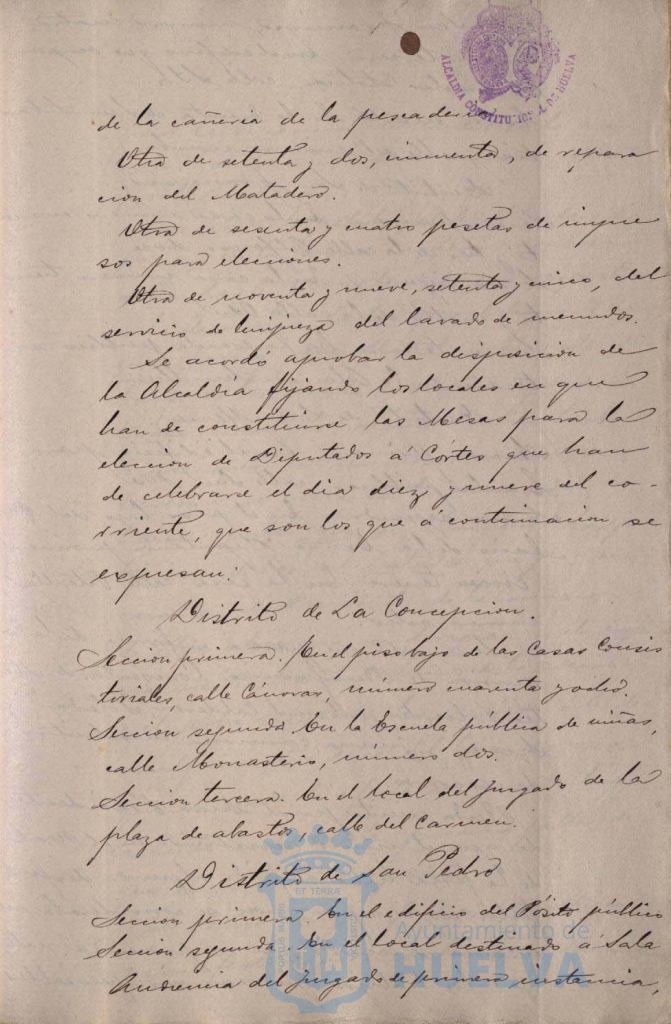 ALCALDIA CONSTITUCIONAL DE HUELVA
de la cañeria de la pescaderia
Otra de setenta y dos, cincuenta, de repara
cion del Matadero.
Otra de sesenta y cuatro pesetas de impre
sos para elecciones.
Otra de noventa y nueve, setenta y cinco, del
servicio de limpieza del lavado de menudos.
Se acordó aprobar la disposicion de
la Alcaldía fijando los locales en que
han de constituirse las Mesas para la
eleccion de Diputados á Córtes que han
de celebrarse el dia diez y nueve del co-
rriente, que son los que á continuacion se
expresan:
Distrito de La Concepcion.
Seccion primera. En el piso bajo de las Casas Consis
toriales, calle Cánovas, número cuarenta y ocho.
Seccion segunda En la Escuela pública de niñas,
calle Monasterio, número dos.
Seccion tercera. En el local del juzgado de la
plaza de abastos, calle del Carmen.
Distrito de San Pedro
Seccion primera. En el edificio del Pósito público
Seccion segunda. En el local destinado á Sala
Audiencia del juzgado de primera instancia,
Ayuntamiento de
HUELVA